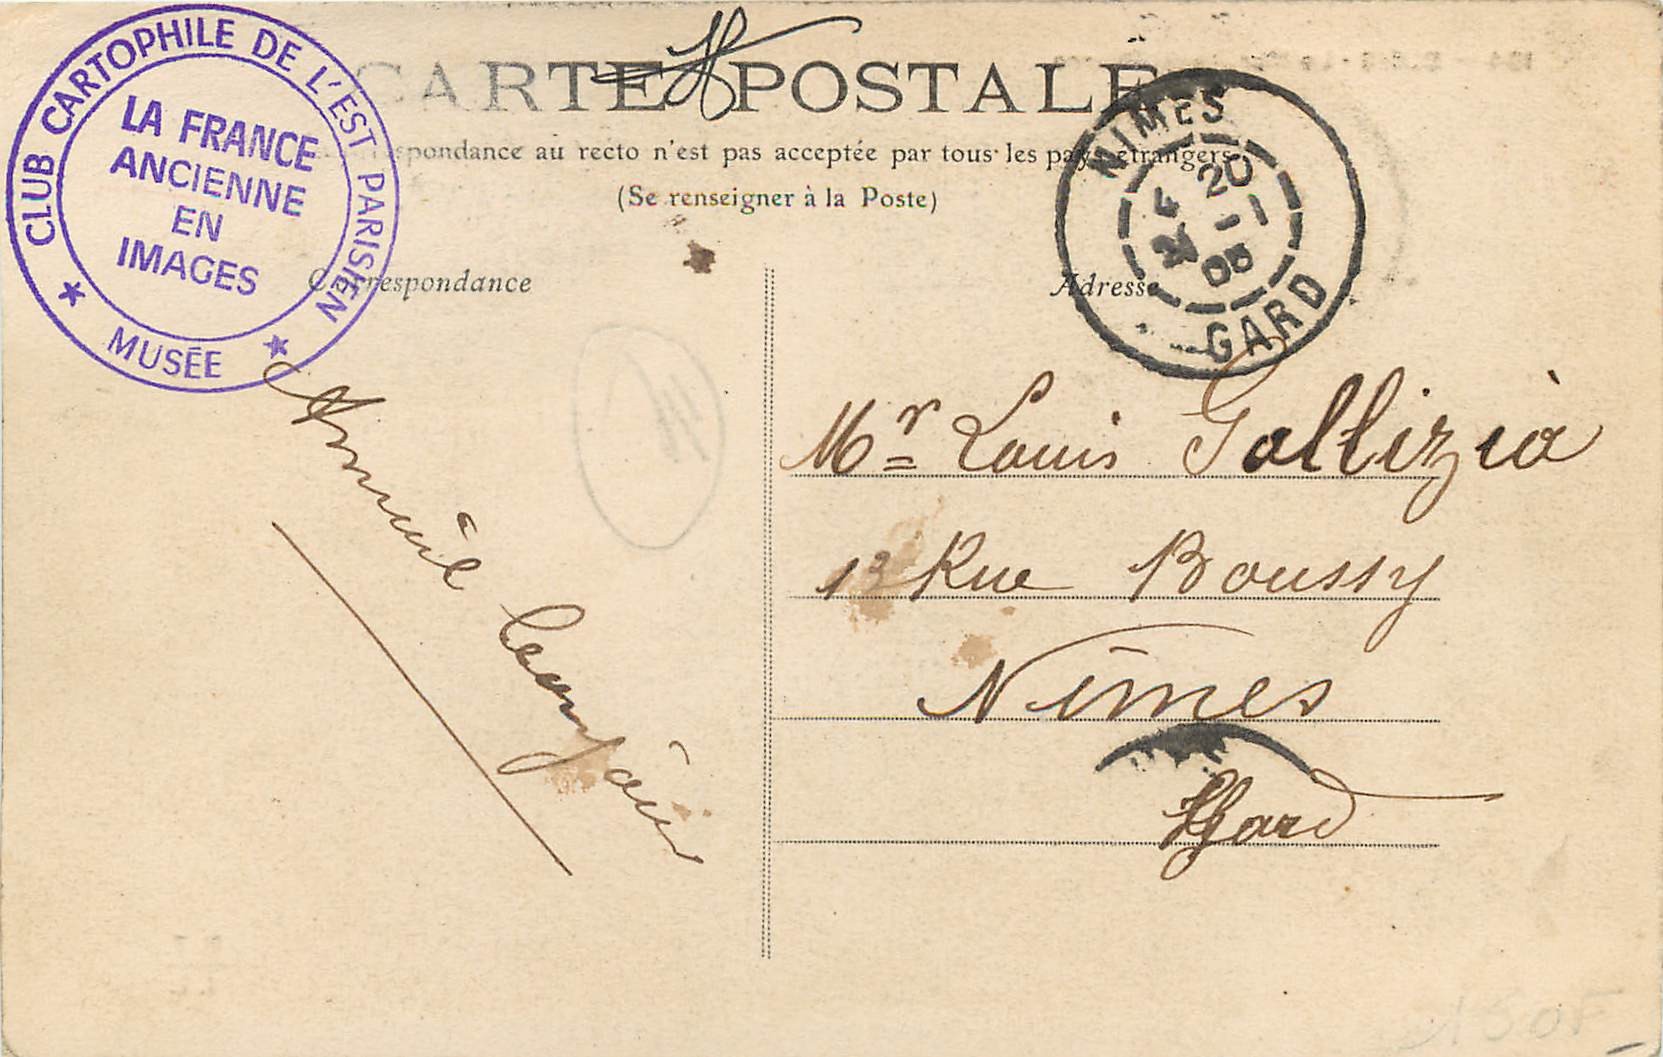 CLUB CARTOPHILE DE L'EST PARISIEN
★ MUSÉE ★
LA FRANCE
ANCIENNE
EN
IMAGES
CARTE POSTALE
respondance au recto n'est pas acceptée par tous les pays étrangers
(Se renseigner à la Poste)
Correspondance
Adresse
NIMES
20
1
GARD
Mr Louis Gallizia
13 Rue Boussy
Nîmes
Gard
150F